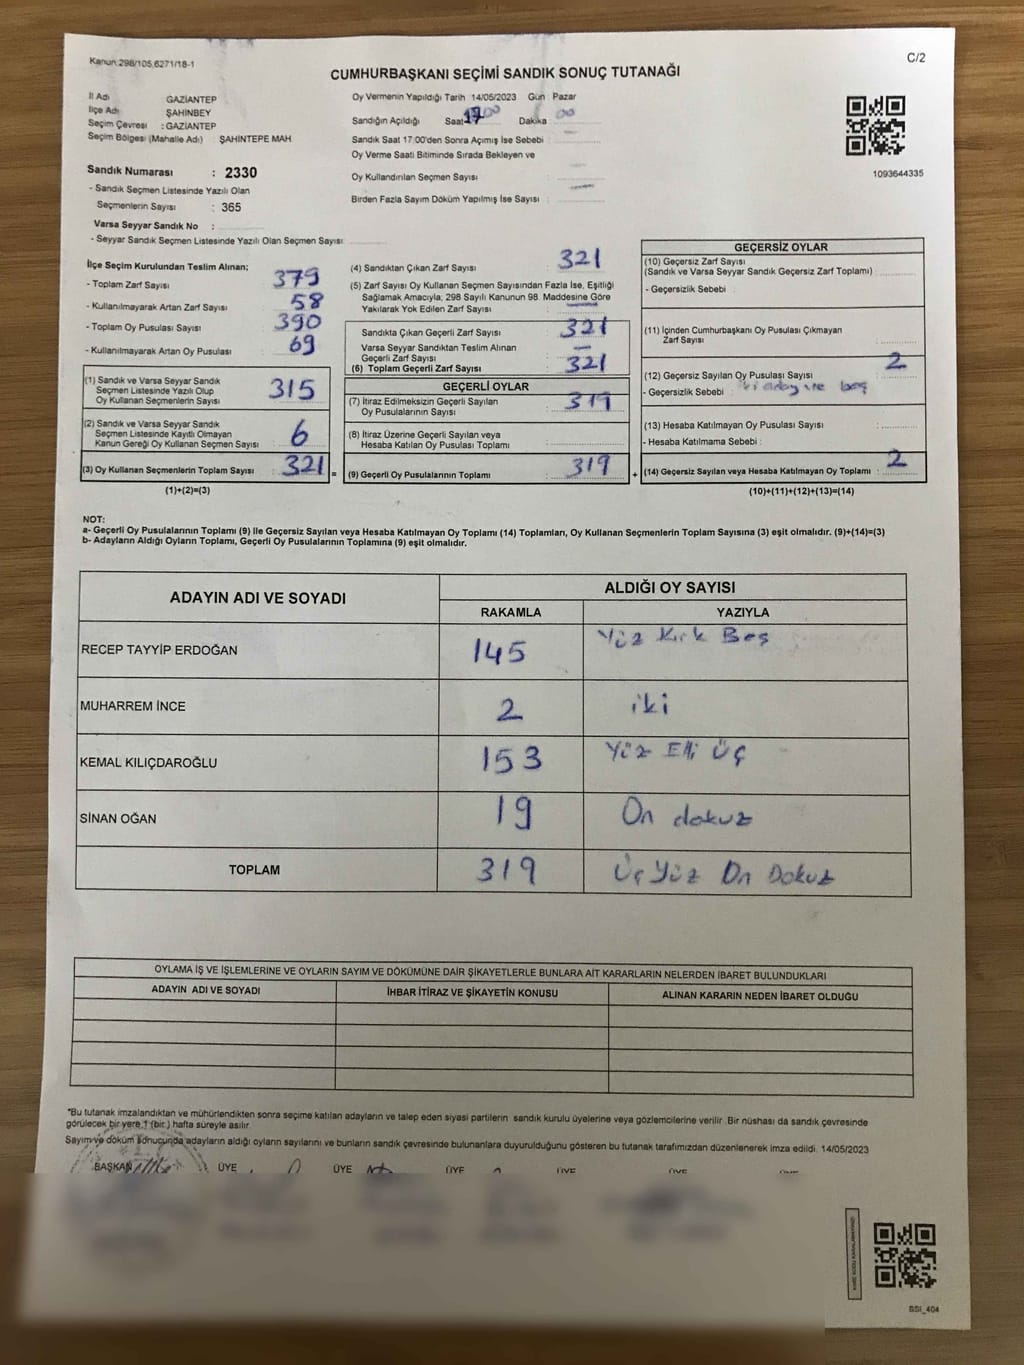 Kanun:298/105,6271/18-1
C/2
CUMHURBAŞKANI SEÇİMİ SANDIK SONUÇ TUTANAĞI
İl Adı GAZİANTEP
İlçe Adı ŞAHİNBEY
Seçim Çevresi : GAZİANTEP
Seçim Bölgesi (Mahalle Adı) : ŞAHİNTEPE MAH
Sandık Numarası : 2330
- Sandık Seçmen Listesinde Yazılı Olan
Seçmenlerin Sayısı : 365
Varsa Seyyar Sandık No :
- Seyyar Sandık Seçmen Listesinde Yazılı Olan Seçmen Sayısı:
Oy Vermenin Yapıldığı Tarih 14/05/2023 Gün : Pazar
Sandığın Açıldığı Saat 17 00 Dakika 00
Sandık Saat 17:00'den Sonra Açımış İse Sebebi :
Oy Verme Saati Bitiminde Sırada Bekleyen ve
Oy Kullandırılan Seçmen Sayısı :
Birden Fazla Sayım Döküm Yapılmış İse Sayısı :
1093644335
İlçe Seçim Kurulundan Teslim Alınan;
- Toplam Zarf Sayısı : 379
- Kullanılmayarak Artan Zarf Sayısı : 58
- Toplam Oy Pusulası Sayısı : 390
- Kullanılmayarak Artan Oy Pusulası : 69
(1) Sandık ve Varsa Seyyar Sandık
Seçmen Listesinde Yazılı Olup
Oy Kullanan Seçmenlerin Sayısı : 315
(2) Sandık ve Varsa Seyyar Sandık
Seçmen Listesinde Kayıtlı Olmayan
Kanun Gereği Oy Kullanan Seçmen Sayısı : 6
(3) Oy Kullanan Seçmenlerin Toplam Sayısı : 321
(1)+(2)=(3)
(4) Sandıktan Çıkan Zarf Sayısı : 321
(5) Zarf Sayısı Oy Kullanan Seçmen Sayısından Fazla İse, Eşitliği
Sağlamak Amacıyla; 298 Sayılı Kanunun 98. Maddesine Göre
Yakılarak Yok Edilen Zarf Sayısı :
Sandıkta Çıkan Geçerli Zarf Sayısı : 321
Varsa Seyyar Sandıktan Teslim Alınan
Geçerli Zarf Sayısı : -
(6) Toplam Geçerli Zarf Sayısı : 321
GEÇERLİ OYLAR
(7) İtiraz Edilmeksizin Geçerli Sayılan
Oy Pusulalarının Sayısı : 319
(8) İtiraz Üzerine Geçerli Sayılan veya
Hesaba Katılan Oy Pusulaları Toplamı :
= (9) Geçerli Oy Pusulalarının Toplamı : 319
GEÇERSİZ OYLAR
(10) Geçersiz Zarf Sayısı
(Sandık ve Varsa Seyyar Sandık Geçersiz Zarf Toplamı) :
- Geçersizlik Sebebi :
(11) İçinden Cumhurbaşkanı Oy Pusulası Çıkmayan
Zarf Sayısı :
(12) Geçersiz Sayılan Oy Pusulası Sayısı : 2
- Geçersizlik Sebebi : iki adaya ve boş
(13) Hesaba Katılmayan Oy Pusulası Sayısı :
- Hesaba Katılmama Sebebi :
+ (14) Geçersiz Sayılan veya Hesaba Katılmayan Oy Toplamı : 2
(10)+(11)+(12)+(13)=(14)
NOT:
a- Geçerli Oy Pusulalarının Toplamı (9) ile Geçersiz Sayılan veya Hesaba Katılmayan Oy Toplamı (14) Toplamları, Oy Kullanan Seçmenlerin Toplam Sayısına (3) eşit olmalıdır. (9)+(14)=(3)
b- Adayların Aldığı Oyların Toplamı, Geçerli Oy Pusulalarının Toplamına (9) eşit olmalıdır.
ADAYIN ADI VE SOYADI ALDIĞI OY SAYISI
RAKAMLA YAZIYLA
RECEP TAYYİP ERDOĞAN 145 Yüz Kırk Beş
MUHARREM İNCE 2 iki
KEMAL KILIÇDAROĞLU 153 Yüz Elli Üç
SİNAN OĞAN 19 On dokuz
TOPLAM 319 Üç Yüz On Dokuz
OYLAMA İŞ VE İŞLEMLERİNE VE OYLARIN SAYIM VE DÖKÜMÜNE DAİR ŞİKAYETLERLE BUNLARA AİT KARARLARIN NELERDEN İBARET BULUNDUKLARI
ADAYIN ADI VE SOYADI İHBAR İTİRAZ VE ŞİKAYETİN KONUSU ALINAN KARARIN NEDEN İBARET OLDUĞU
*Bu tutanak imzalandıktan ve mühürlendikten sonra seçime katılan adayların ve talep eden siyasi partilerin sandık kurulu üyelerine veya gözlemcilerine verilir. Bir nüshası da sandık çevresinde
görülecek bir yere 1 (bir ) hafta süreyle asılır.
Sayım ve döküm sonucunda adayların aldığı oyların sayılarını ve bunların sandık çevresinde bulunanlara duyurulduğunu gösteren bu tutanak tarafımızdan düzenlenerek imza edildi. 14/05/2023
BAŞKAN ÜYE ÜYE ÜYE ÜYE ÜYE ÜYE
SSI_404